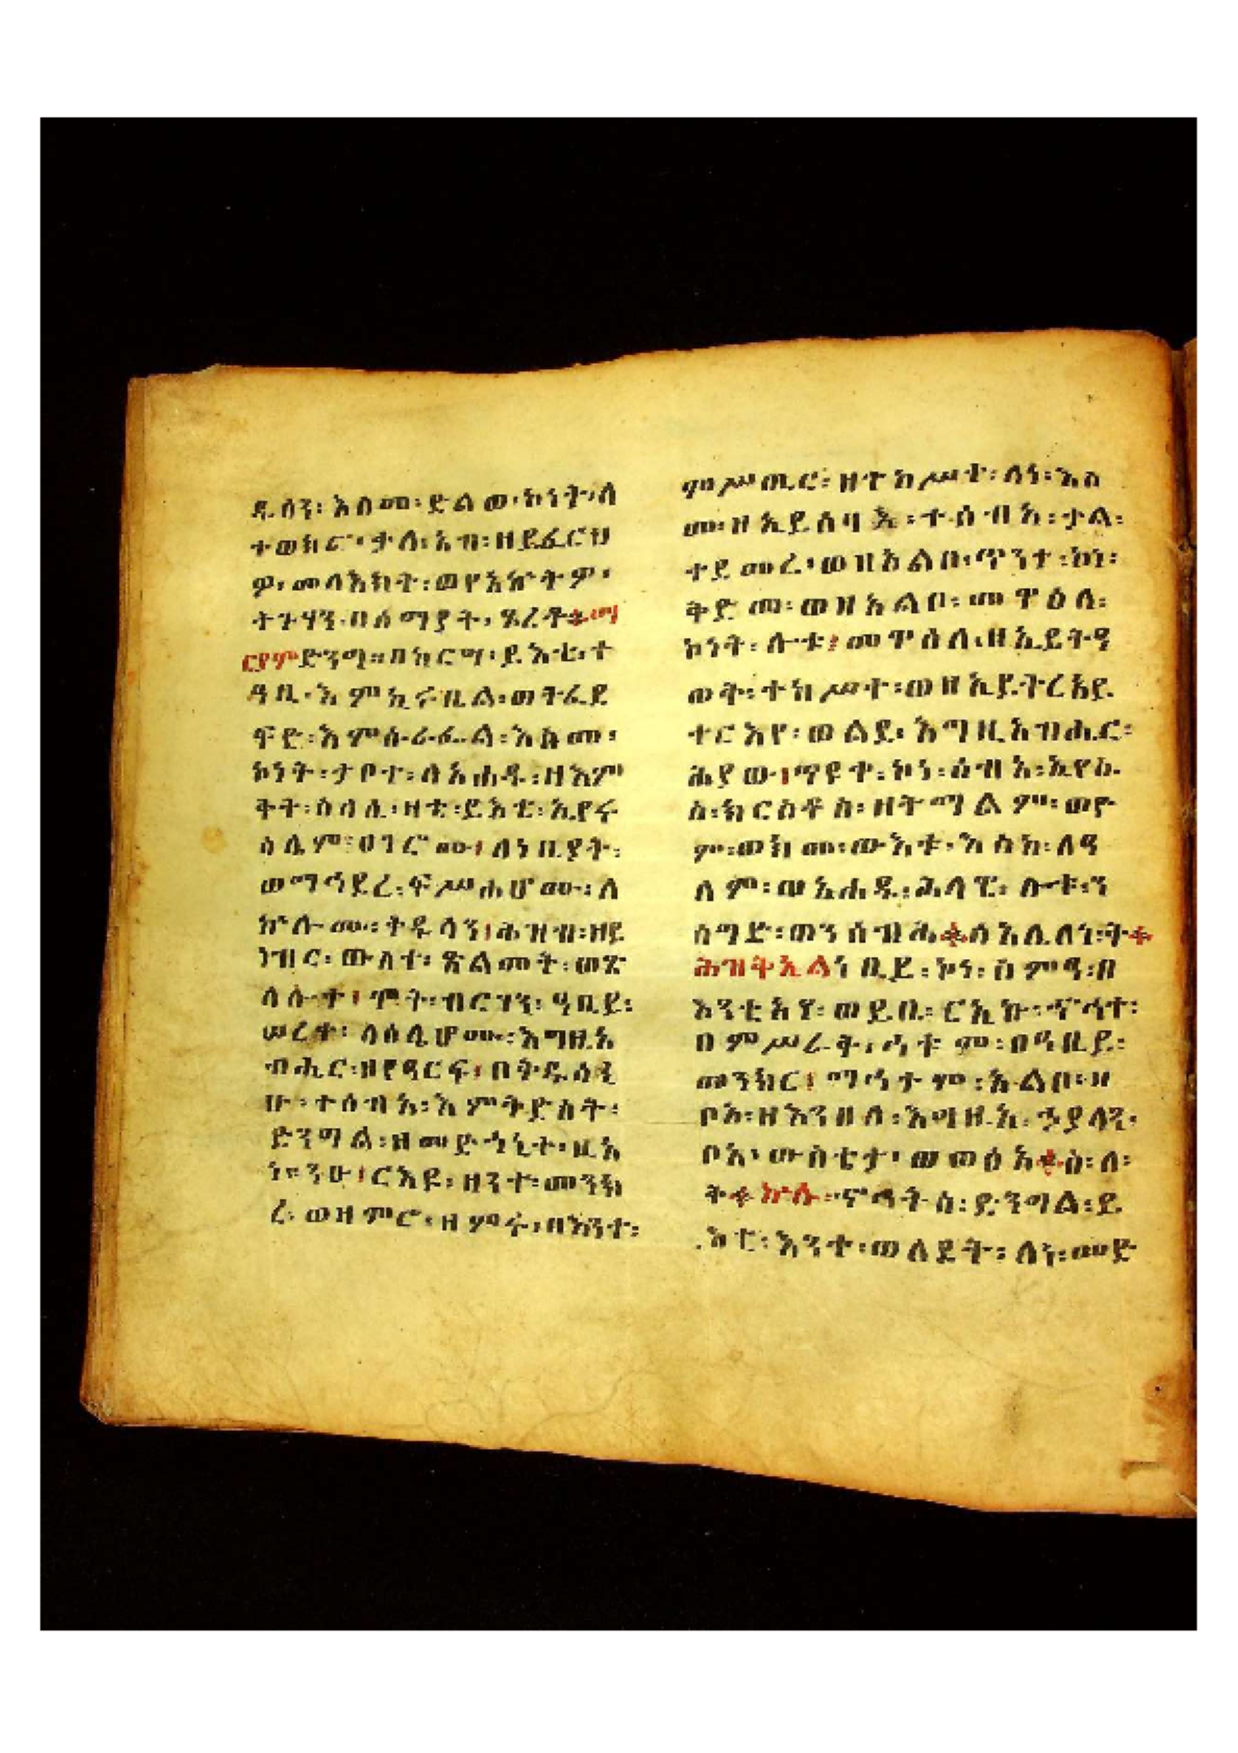 ዱሳን፡ እስመ፡ ድልወ፡ ኮነት፡ ለ
ተወክፎ፡ ቃለ፡ አብ፡ ዘይፈርህ
ዎ፡ መላእክት፡ ወየአኵትዎ፡
ትጉሃን፡ በሰማያት፡ ጼረቶ፨ማ
ርያም፡ድንግ፡፡በክርሣ፡ ይእቲ፡ተ
ዓቢ፡ እምኪሩቤል፡ ወትፈደ
ፍድ፡ እምሱራፌል፡ እስመ፡
ኮነት፡ ታቦተ፡ ለአሐዱ፡ ዘእም
ቅት፡ ሥላሴ፡ ዛቲ፡ ይእቲ፡ ኢየሩ
ሳሌም፡ ሀገሮሙ፡ ለነቢያት፡
ወማኅደረ፡ ፍሥሐሆሙ፡ ለ
ኵሎሙ፡ ቅዱሳን፡ሕዝብ፡ ዘይ
ነብር፡ ውስተ፡ ጽልመት፡ ወጽ
ላሎተ፡ ሞት፡ ብርሃን፡ ዓቢይ፡
ሠረቀ፡ ላዕሌሆሙ፡ እግዚአ
ብሔር፡ ዘየዓርፍ፡ በቅዱሳኒ
ሁ፡ ተሰብአ፡ እምቅድስት፡
ድንግል፡ ለመድኀኒተ፡ ዚአ
ነ፡ ንዑ፡ ርእዩ፡ ዘንተ፡ መንክ
ረ፡ ወዘምሮ፡ ዘምሩ፡ በእንተ፡
ምሥጢር፡ ዘተከሥተ፡ ለነ፡ እስ
መ፡ ዘኢይሰባእ፡ ተሰብአ፡ ቃል፡
ተደመረ፡ ወዘአልቦ፡ ጥንተ፡ ኮነ፡
ቅድመ፡ ወዘአልቦ፡ መዋዕለ፡
ኮነት፡ ሎቱ፡ መዋዕለ፡ ዘኢይትዓ
ወቅ፡ ተከሥተ፡ ወዘኢይትረአይ
ተርእየ፡ ወልደ፡ እግዚአብሔር፡
ሕያው፡ ጥዩቀ፡ ኮነ፡ ሰብአ፡ ኢየሱ
ስ፡ ክርስቶስ፡ ዘትማልም፡ ወዮ
ም፡ ወክመ፡ ውእቱ፡ እስከ፡ ለዓ
ለም፡ ወአሐዱ፡ ሕላዌ፡ ሎቱ፡ ን
ስግድ፡ ወንሰብሕ፨ሰአሊ፡ ለነ፡ ቅ፨
ሕዝቅኤል፡ ነቢይ፡ ኮነ፡ ስምዓ፡ በ
እንቲአየ፡ ወይቤ፡ ርኢኩ፡ ኆኅተ፡
በምሥራቅ፡ ኅቱም፡ በዓቢይ፡
መንክር፡ ማኅተም፡ አልቦ፡ ዘ
ቦአ፡ ዘእንበለ፡ እግዚአ፡ ኃያላን፡
ቦአ፡ ውስቴታ፡ ወወፅአ፨ሰ፡ ለ፡
ቅ፨ኵሉ፡ ኆኅትሰ፡ ድንግል፡ ይ
እቲ፡ እንተ፡ ወለደት፡ ለነ፡ መድ